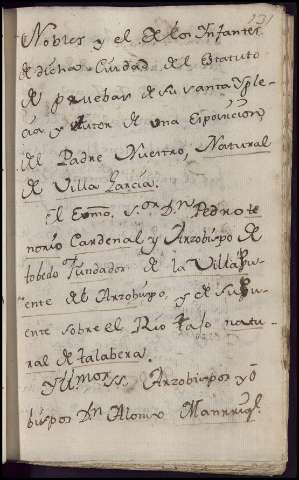 131
Nobles y el de los Infantes
de dicha Ciudad del Estatuto
de pruebas de su santa Ygle-
cia y Autor de una Exposicion
del Padre Nuestro, Natural
de Villa Garcia.
El Exmo, S.or Dn Pedro te
norio Cardenal y Arzobispo de
toledo Fundador de la Villa Pu-
ente del Arzobispo, y de su Pu-
ente sobre el Rio tajo natu-
ral de talabera.
Yllmos SS. Arzobispos y O
bispos Dn Alonso Manrriq.